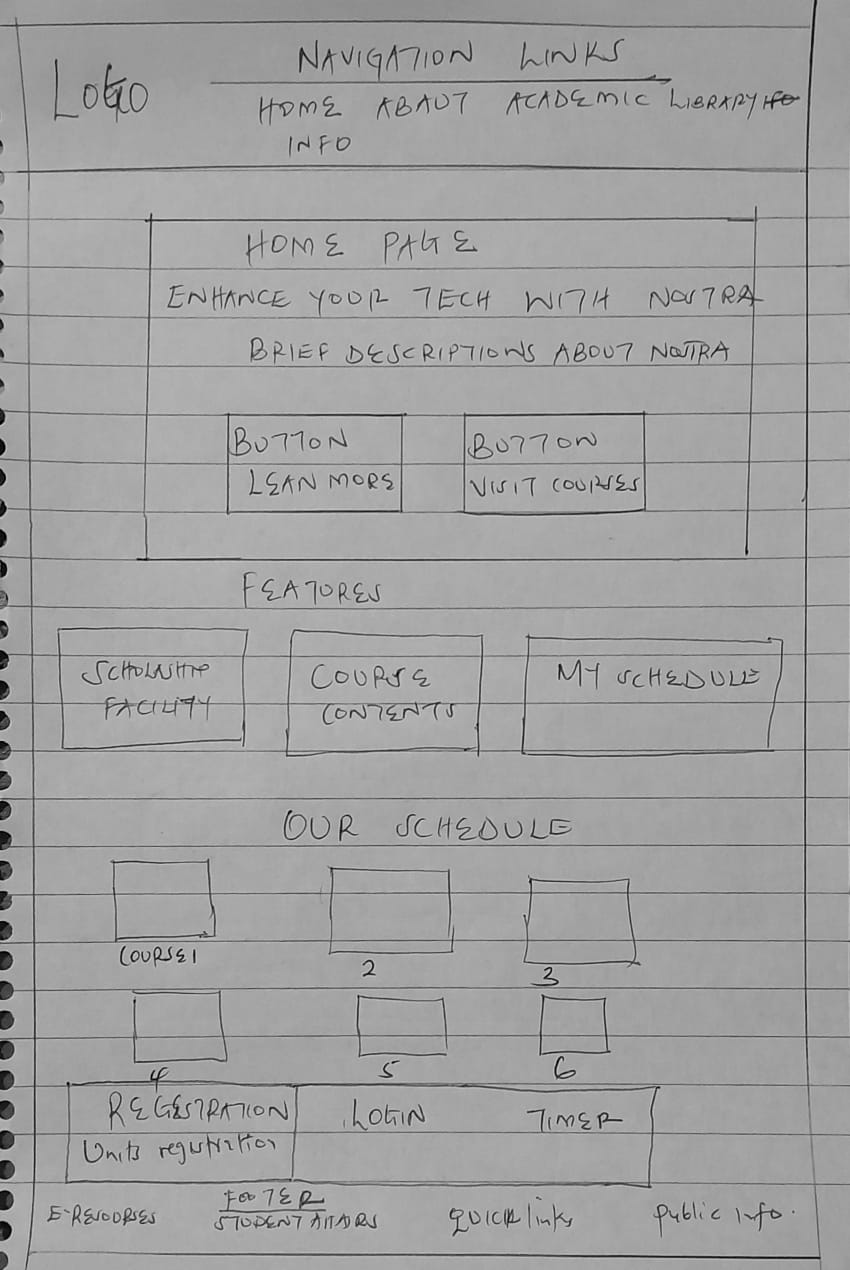 NAVIGATION LINKS
LOGO
HOME ABAUT ACADEMIC LIBRARY
INFO
HOME PAGE
ENHANCE YOUR TECH WITH NOSTRA
BRIEF DESCRIPTIONS ABOUT NOSTRA
BUTTON
LEAN MORE
BUTTON
VISIT COURSES
FEATURES
SCHOLNSHIP
FACILITY
COURSE
CONTENTS
MY SCHEDULE
OUR SCHEDULE
COURSE 1
2
3
4
5
6
REGESTRATION
Units registration
LOGIN
TIMER
FOOTER
E-RESOORSES
STUDENT
QUICK links
Public Info.